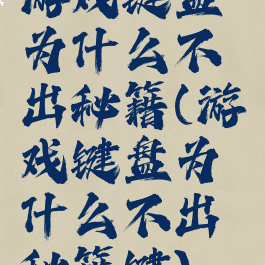 游戏键盘
为什么不
出秘籍(游
戏键盘为
什么不出
秘籍键)